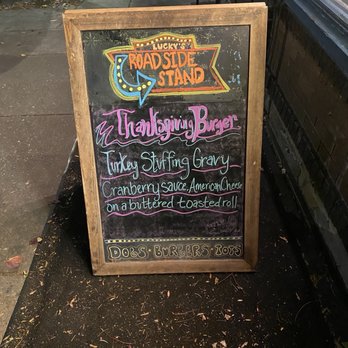 LUCKY'S
ROADSIDE
STAND
Thanksgiving Burger
Turkey Stuffing Gravy
Cranberry sauce, American Cheese
on a buttered toasted roll
DOGS · BURGERS ·